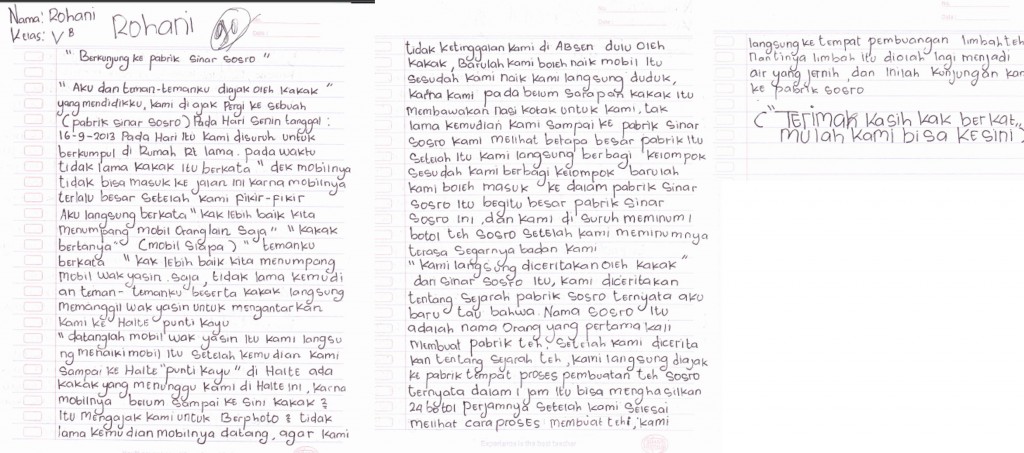 Nama: Rohani
Kelas: V B
Rohani
90
" Berkunjung ke pabrik Sinar Sosro "
" Aku dan teman-temanku diajak oleh kakak "
yang mendidikku, kami di ajak Pergi ke sebuah
(pabrik sinar sosro) Pada Hari Senin tanggal :
16-9-2013 Pada Hari Itu kami disuruh untuk
berkumpul di Rumah Rt lama. pada waktu
tidak lama kakak Itu berkata " dek mobilnya
tidak bisa masuk ke jalan ini karna mobilnya
terlalu besar Setelah kami fikir-fikir
Aku langsung berkata " kak lebih baik kita
menumpang mobil Orang lain Saja " " kakak
bertanya " (mobil Siapa) " temanku
berkata " kak lebih baik kita menumpang
mobil wak yasin. Saja, tidak lama kemudi
an teman-temanku beserta kakak langsung
memanggil wak yasin untuk mengantarkan
kami ke Halte punti kayu
" datanglah mobil wak yasin Itu kami langsu
ng menaiki mobil Itu Setelah kemudian kami
Sampai ke Halte "punti kayu" di Halte ada
kakak yang menunggu kami di Halte ini, karna
mobilnya belum Sampai ke Sini kakak &
Itu mengajak kami untuk Berphoto & tidak
lama kemudian mobilnya datang, agar kami
tidak ketinggalan kami di ABsen dulu Oleh
kakak, Barulah kami boleh naik mobil Itu
Sesudah kami naik kami langsung duduk,
karna kami pada belum Sarapan kakak Itu
membawakan nasi kotak untuk kami, tak
lama kemudian kami Sampai ke pabrik Sinar
Sosro kami melihat betapa besar pabrik Itu
Setelah Itu kami langsung berbagi kelompok
Sesudah kami berbagi kelompok barulah
kami boleh masuk ke dalam pabrik Sinar
Sosro Itu begitu besar pabrik Sinar
Sosro ini, dan kami di Suruh meminum 1
botol teh Sosro Setelah kami meminumnya
terasa Segarnya badan kami
" kami langsung diceritakan Oleh kakak "
dari Sinar Sosro Itu, kami diceritakan
tentang Sejarah pabrik Sosro ternyata aku
baru tau bahwa. Nama Sosro Itu
adalah nama Orang yang pertama kali
membuat pabrik teh. Setelah kami dicerita
kan tentang Sejarah teh, kami langsung diajak
ke pabrik tempat proses pembuatan teh Sosro
ternyata dalam 1 jam Itu bisa menghasilkan
24 botol perjamnya Setelah kami Selesai
melihat cara proses membuat teh, kami
langsung ke tempat pembuangan limbah teh
nantinya limbah Itu diolah lagi menjadi
air yang jernih, dan Inilah kunjungan kami
ke pabrik sosro
( " Terimah kasih kak berkat,
mulah kami bisa kesini,
Experience is the best teacher